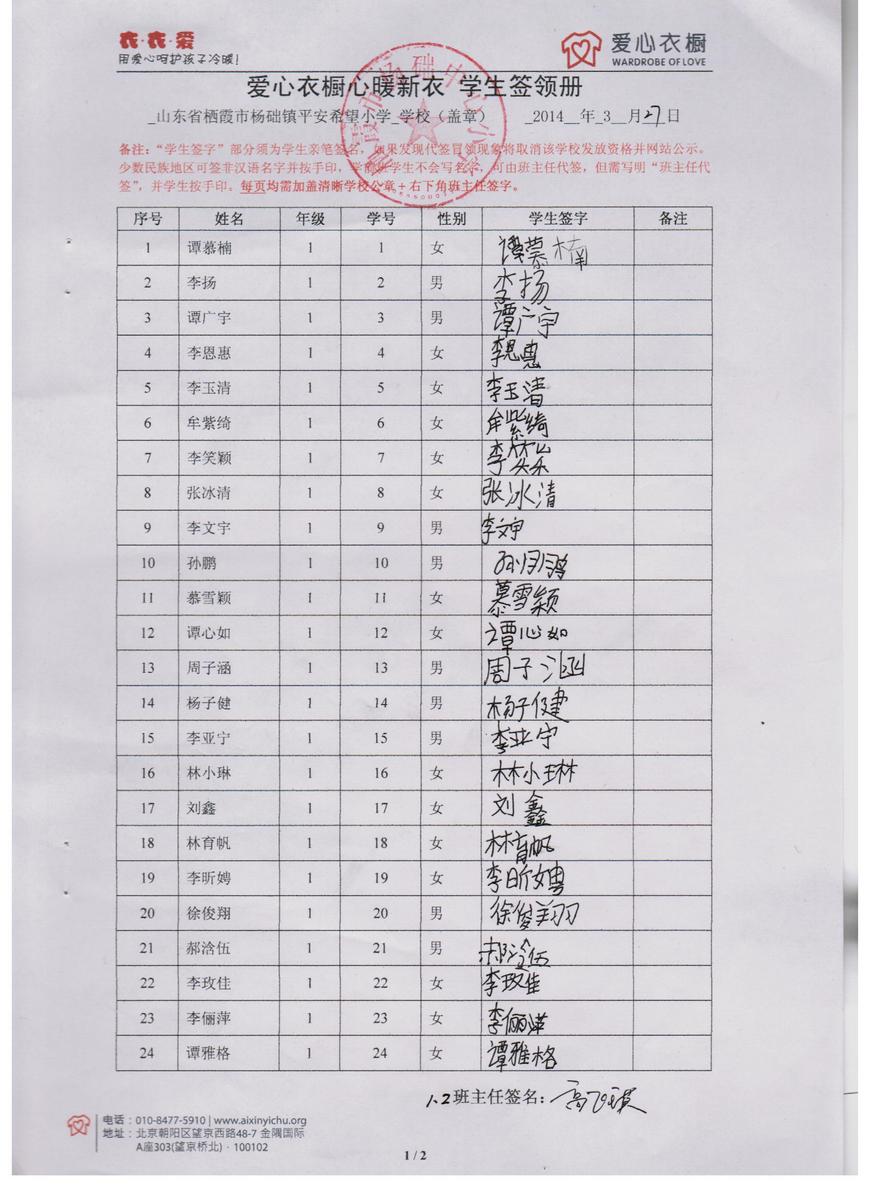 衣·衣·爱
用爱心呵护孩子冷暖!
爱心衣橱
WARDROBE OF LOVE
爱心衣橱心暖新衣 学生签领册
_山东省栖霞市杨础镇平安希望小学_学校（盖章） _2014__年_3__月_27_日
备注：“学生签字”部分须为学生亲笔签名，如果发现代签冒领现象将取消该学校发放资格并网站公示。
少数民族地区可签非汉语名字并按手印，学前班学生不会写名字，可由班主任代签，但需写明“班主任代
签”，并学生按手印。每页均需加盖清晰学校公章+右下角班主任签字。
序号 姓名 年级 学号 性别 学生签字 备注
1 谭慕楠 1 1 女 谭慕楠
2 李扬 1 2 男 李扬
3 谭广宇 1 3 男 谭广宇
4 李恩惠 1 4 女 李恩惠
5 李玉清 1 5 女 李玉清
6 牟紫绮 1 6 女 牟紫绮
7 李笑颖 1 7 女 李
8 张冰清 1 8 女 张冰清
9 李文宇 1 9 男 李文宇
10 孙鹏 1 10 男 孙鹏
11 慕雪颖 1 11 女 慕雪颖
12 谭心如 1 12 女 谭心如
13 周子涵 1 13 男 周子涵
14 杨子健 1 14 男 杨子健
15 李亚宁 1 15 男 李亚宁
16 林小琳 1 16 女 林小琳
17 刘鑫 1 17 女 刘鑫
18 林育帆 1 18 女 林育帆
19 李昕娉 1 19 女 李昕娉
20 徐俊翔 1 20 男 徐俊翔
21 郝浛伍 1 21 男 郝浛伍
22 李玫佳 1 22 女 李玫佳
23 李俪萍 1 23 女 李俪萍
24 谭雅格 1 24 女 谭雅格
1.2班主任签名：高
电话：010-8477-5910 | www.aixinyichu.org
地址：北京朝阳区望京西路48-7 金隅国际
A座303(望京桥北) · 100102
1 / 2